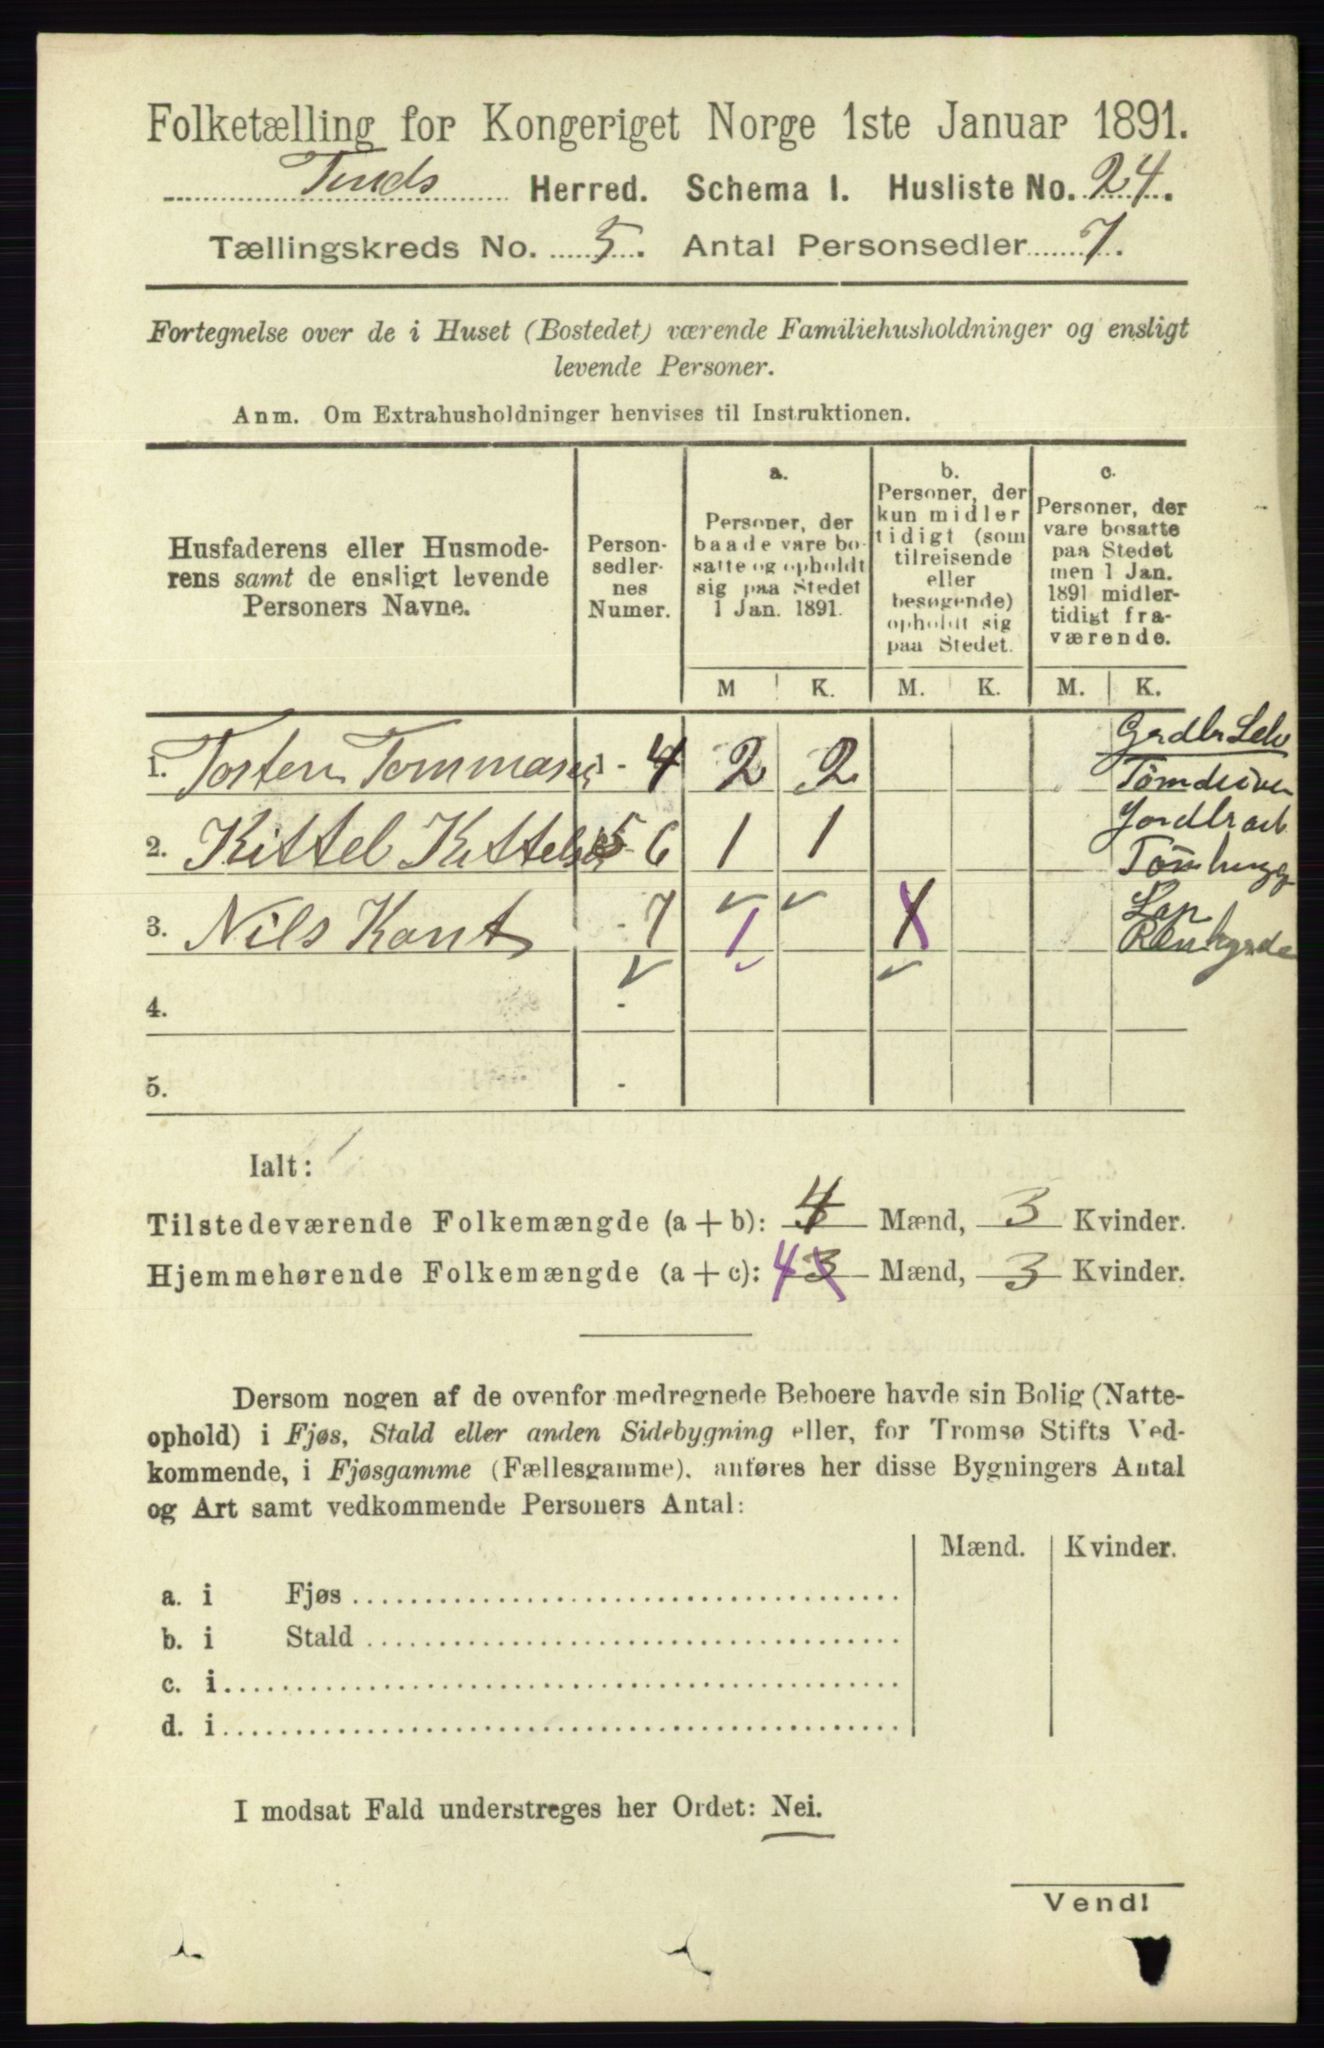 Folketælling for Kongeriget Norge 1ste Januar 1891.
Tinds Herred. Schema I. Husliste No. 24.
Tællingskreds No. 5. Antal Personsedler 7.
Fortegnelse over de i Huset (Bostedet) værende Familiehusholdninger og ensligt
levende Personer.
Anm. Om Extrahusholdninger henvises til Instruktionen.
Husfaderens eller Husmode-
rens samt de ensligt levende
Personers Navne.
Person-
sedler-
nes
Numer.
a.
Personer, der
baade vare bo-
satte og opholdt
sig paa Stedet
1 Jan. 1891.
b.
Personer, der
kun midler
tidigt (som
tilreisende
eller
besøgende)
opholdt sig
paa Stedet.
c.
Personer, der
vare bosatte
paa Stedet
men 1 Jan.
1891 midler-
tidigt fra-
værende.
M K. M. K. M. K.
1. Torten Tommasen 1 - 4 2 2 Grdbr Selv
Tømdriver
2. Kittel Kittels 5 - 6 1 1 Jordbr arb
Tømhugg
3. Nils Kant - 7 1 X Lap
4. -
5. -
Ialt:
Tilstedeværende Folkemængde (a + b): 4 Mænd, 3 Kvinder.
Hjemmehørende Folkemængde (a + c): 4 3 Mænd, 3 Kvinder.
Dersom nogen af de ovenfor medregnede Beboere havde sin Bolig (Natte-
ophold) i Fjøs, Stald eller anden Sidebygning eller, for Tromsø Stifts Ved-
kommende, i Fjøsgamme (Fællesgamme), anføres her disse Bygningers Antal
og Art samt vedkommende Personers Antal:
Mænd. Kvinder.
a. i Fjøs
b. i Stald
c. i
d. i
I modsat Fald understreges her Ordet: Nei.
Vend!